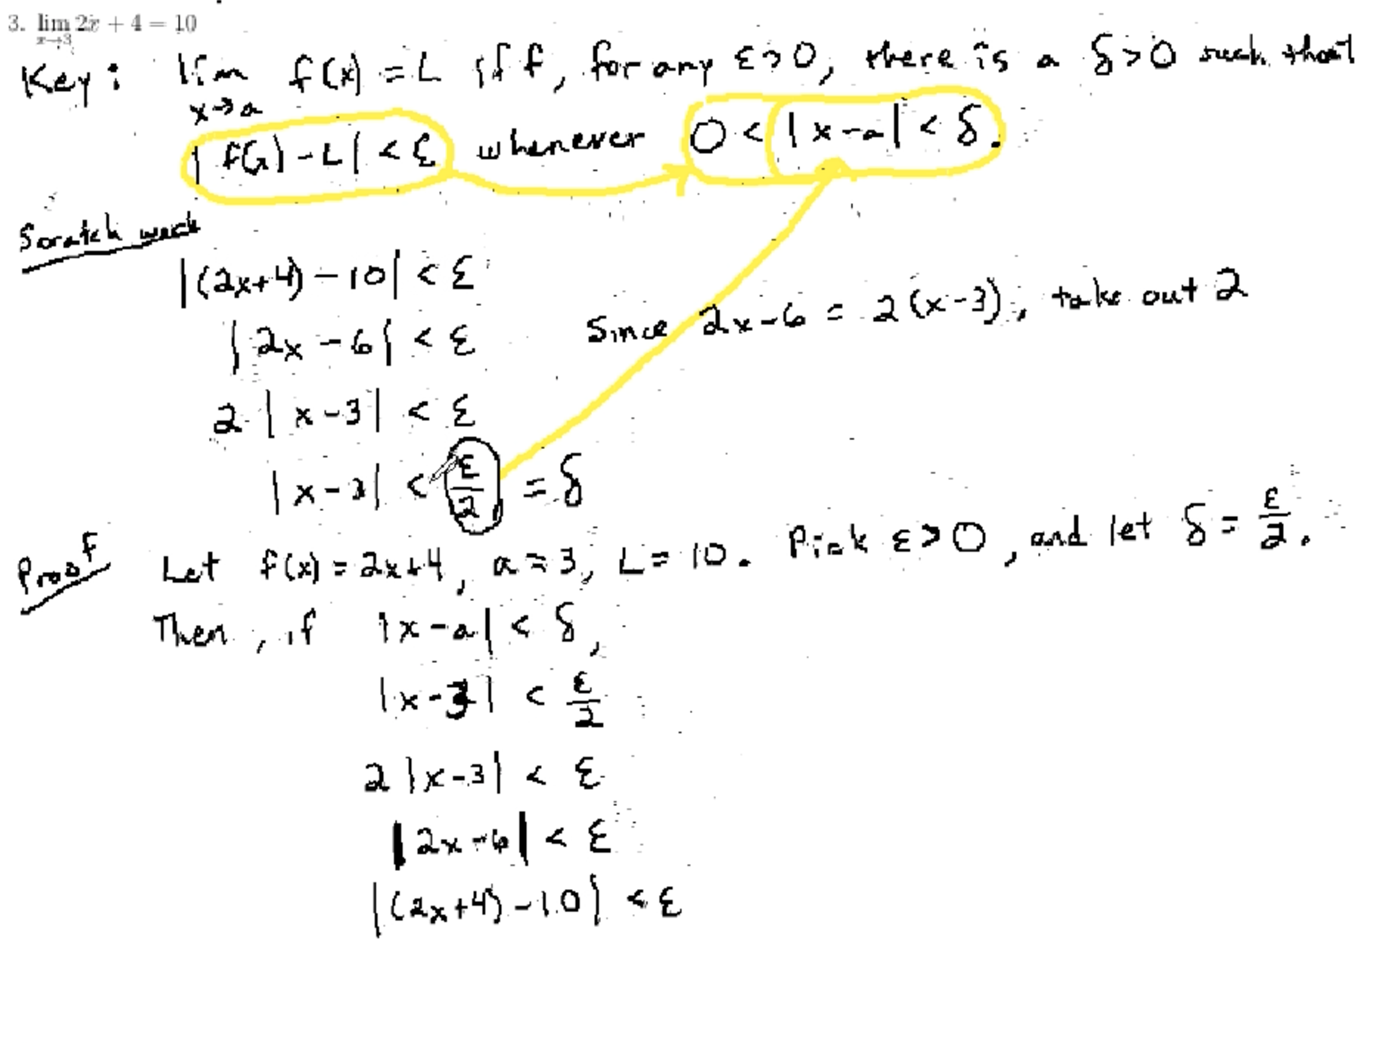 3. lim 2x + 4 = 10
x→3
Key: lim f(x) = L iff, for any ε>0, there is a δ>0 such that
x→a
|f(x)-L| < ε whenever 0 < |x-a| < δ.
Scratch work
|(2x+4)-10| < ε
|2x-6| < ε Since 2x-6 = 2(x-3), take out 2
2|x-3| < ε
|x-3| < ε/2 = δ
Proof Let f(x) = 2x+4, a = 3, L = 10. Pick ε>0, and let δ = ε/2.
Then, if |x-a| < δ,
|x-3| < ε/2
2|x-3| < ε
|2x-6| < ε
|(2x+4)-10| < ε